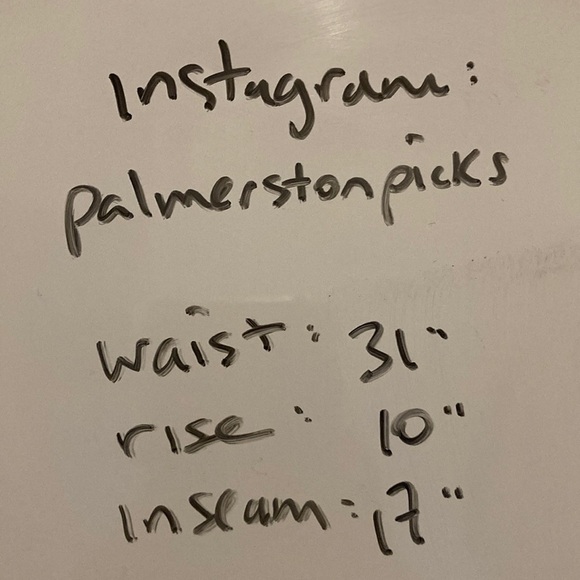 Instagram:
palmerstonpicks
waist: 31"
rise: 10"
inseam: 17"